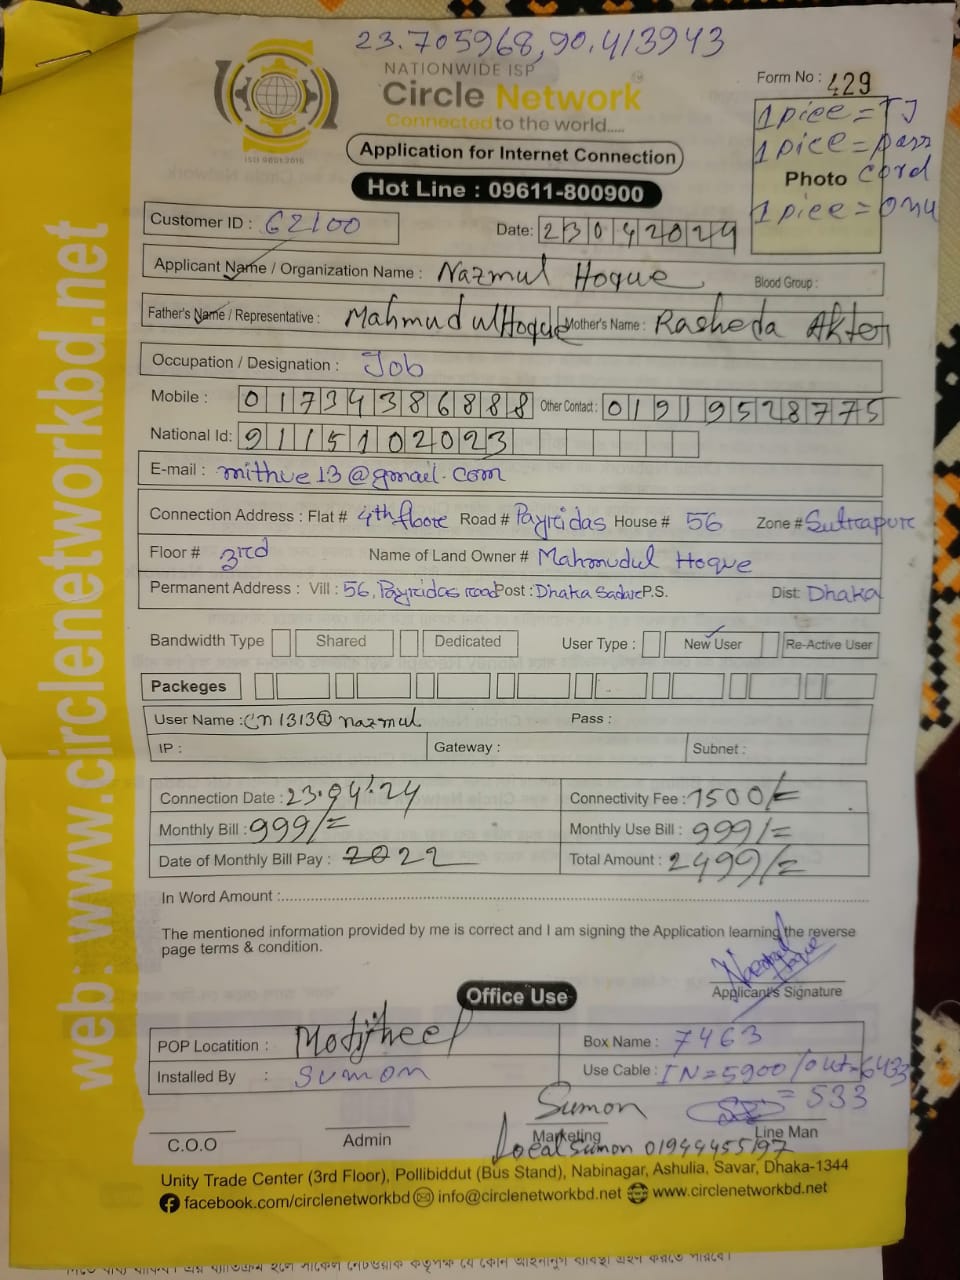 23.705968,90.413943
NATIONWIDE ISP
Circle Network
Connected to the world.....
ISO 9001:2015
Form No : 429
1 piece = TJ
1 piece = pass
Photo cord
1 piece = onu
Application for Internet Connection
Hot Line : 09611-800900
Customer ID : 62100
Date: 23042024
Applicant Name / Organization Name : Nazmul Hoque Blood Group :
Father's Name / Representative : Mahmudul Hoque Mother's Name : Rasheda Akter
Occupation / Designation : Job
Mobile : 01734386888 Other Contact : 01919528775
National Id: 9115102023
E-mail : mithue13@gmail.com
Connection Address : Flat # 4th floore Road # Payridas House # 56 Zone # Sutrapure
Floor # 3rd Name of Land Owner # Mahmudul Hoque
Permanent Address : Vill : 56, Payridas road Post : Dhaka Sadar P.S. Dist: Dhaka
Bandwidth Type Shared Dedicated User Type : New User Re-Active User
Packeges
User Name : cn1313@nazmul Pass :
IP : Gateway : Subnet :
Connection Date : 23.04.24 Connectivity Fee : 1500/=
Monthly Bill : 999/= Monthly Use Bill : 999/=
Date of Monthly Bill Pay : 2022 Total Amount : 2499/=
In Word Amount :
The mentioned information provided by me is correct and I am signing the Application learning the reverse
page terms & condition.
Nazmul Hoque
Applicant's Signature
Office Use
POP Locatition : Motijheel Box Name : 7463
Installed By : Sumon Use Cable : IN=5900/out=6433
= 533
Sumon
C.O.O Admin Marketing Line Man
Local Sumon 01944455197
Unity Trade Center (3rd Floor), Pollibiddut (Bus Stand), Nabinagar, Ashulia, Savar, Dhaka-1344
facebook.com/circlenetworkbd info@circlenetworkbd.net www.circlenetworkbd.net
web: www.circlenetworkbd.net